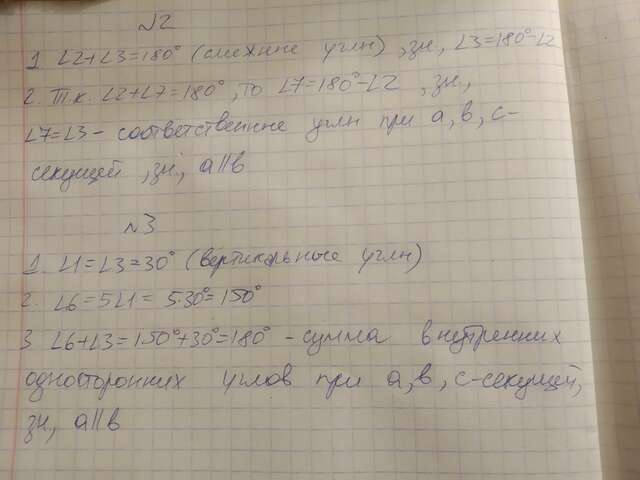 №2
1. ∠2+∠3=180° (смежные углы), зн, ∠3=180°-∠2
2. Т.к. ∠2+∠7=180°, то ∠7=180°-∠2, зн,
∠7=∠3 - соответственные углы при a, b, c-
секущей, зн, a∥b
№3
1. ∠1=∠3=30° (вертикальные углы)
2. ∠6=5∠1= 5·30°=150°
3 ∠6+∠3=150°+30°=180° - сумма внутренних
односторонних углов при a, b, c-секущей,
зн, a∥b